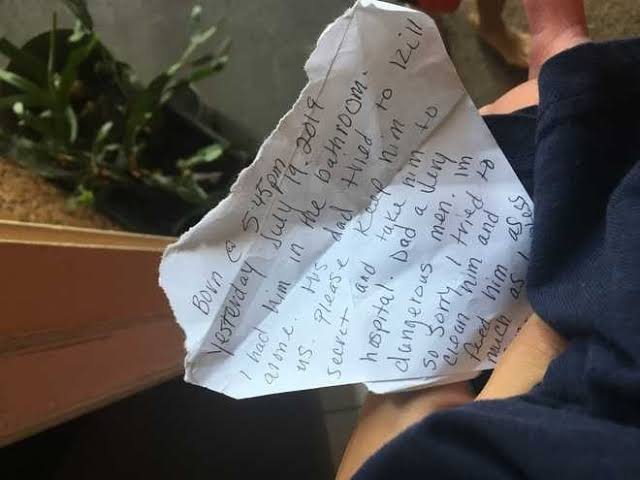 Born @ 545pm
Yesterday July 19, 2019
I had him in the bathroom.
alone. His dad tried to kill
us. Please keep him
secret and take him to
hospital. Dad a very
dangerous men. im
so sorry I tried to
clean him and
feed him as
much as I